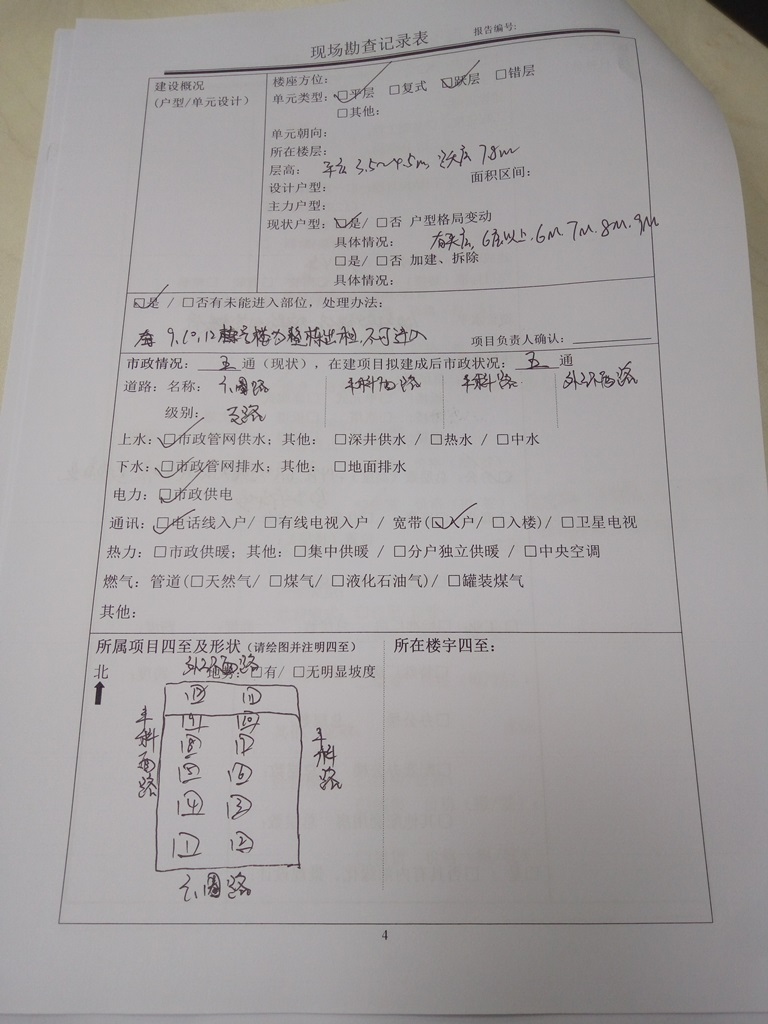 现场勘查记录表
报告编号:
建设概况
(户型/单元设计)
楼座方位:
单元类型: □平层 □复式 □跃层 □错层
□其他:
单元朝向:
所在楼层:
层高: 平层 3.5~4.5m, 跃层 78m
面积区间:
设计户型:
主力户型:
现状户型: □是/ □否 户型格局变动
具体情况: 有夹层, 6层以上. 6m. 7m. 8m. 9m
□是/ □否 加建、拆除
具体情况:
□是 / □否有未能进入部位, 处理办法:
9, 10, 12 号楼为整栋出租, 不可进入
项目负责人确认:
市政情况: 五 通 (现状), 在建项目拟建成后市政状况: 五 通
道路: 名称: 丰科西路 丰科路 外环西路
级别: 支路
上水: □市政管网供水; 其他: □深井供水 / □热水 / □中水
下水: □市政管网排水; 其他: □地面排水
电力: □市政供电
通讯: □电话线入户/ □有线电视入户 / 宽带(□入户/ □入楼)/ □卫星电视
热力: □市政供暖; 其他: □集中供暖 / □分户独立供暖 / □中央空调
燃气: 管道(□天然气/ □煤气/ □液化石油气)/ □罐装煤气
其他:
所属项目四至及形状 (请绘图并注明四至)
所在楼宇四至:
外环西路
□有/ □无明显坡度
北
⑫ ⑪
⑨ ⑩
⑧ ⑦
⑤ ⑥
④ ③
① ②
丰科西路
丰科路
4